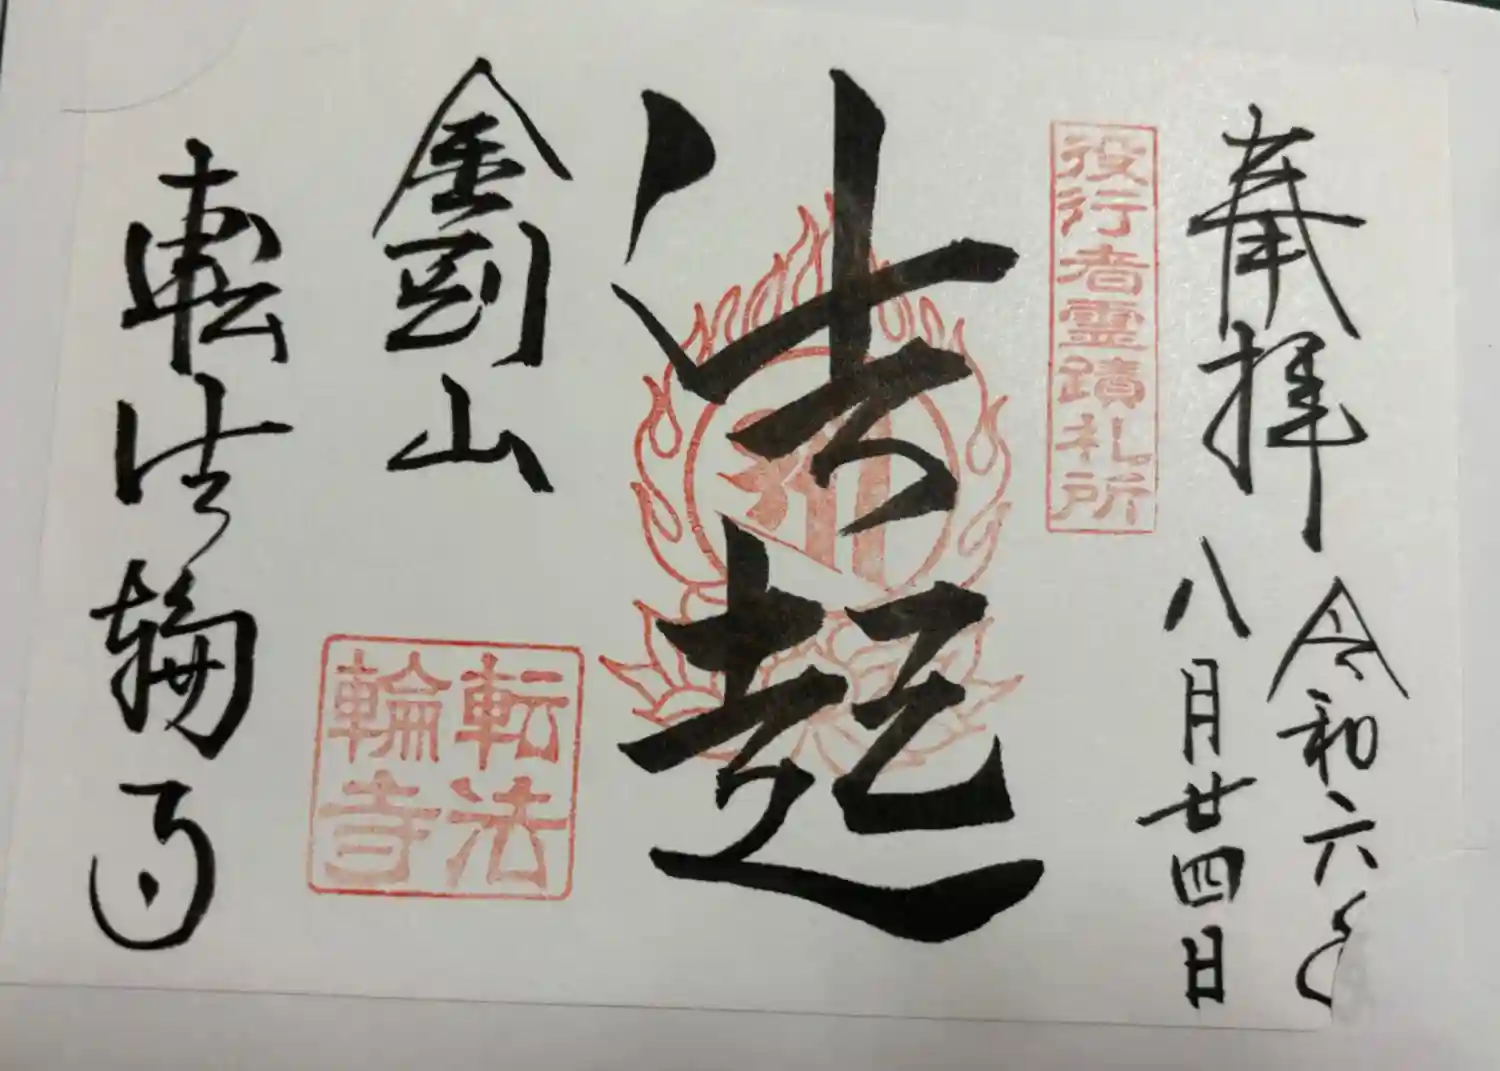 奉拝
令和六年
八月廿四日
役行者霊蹟札所
法起
金剛山
転法輪寺
転法
輪寺